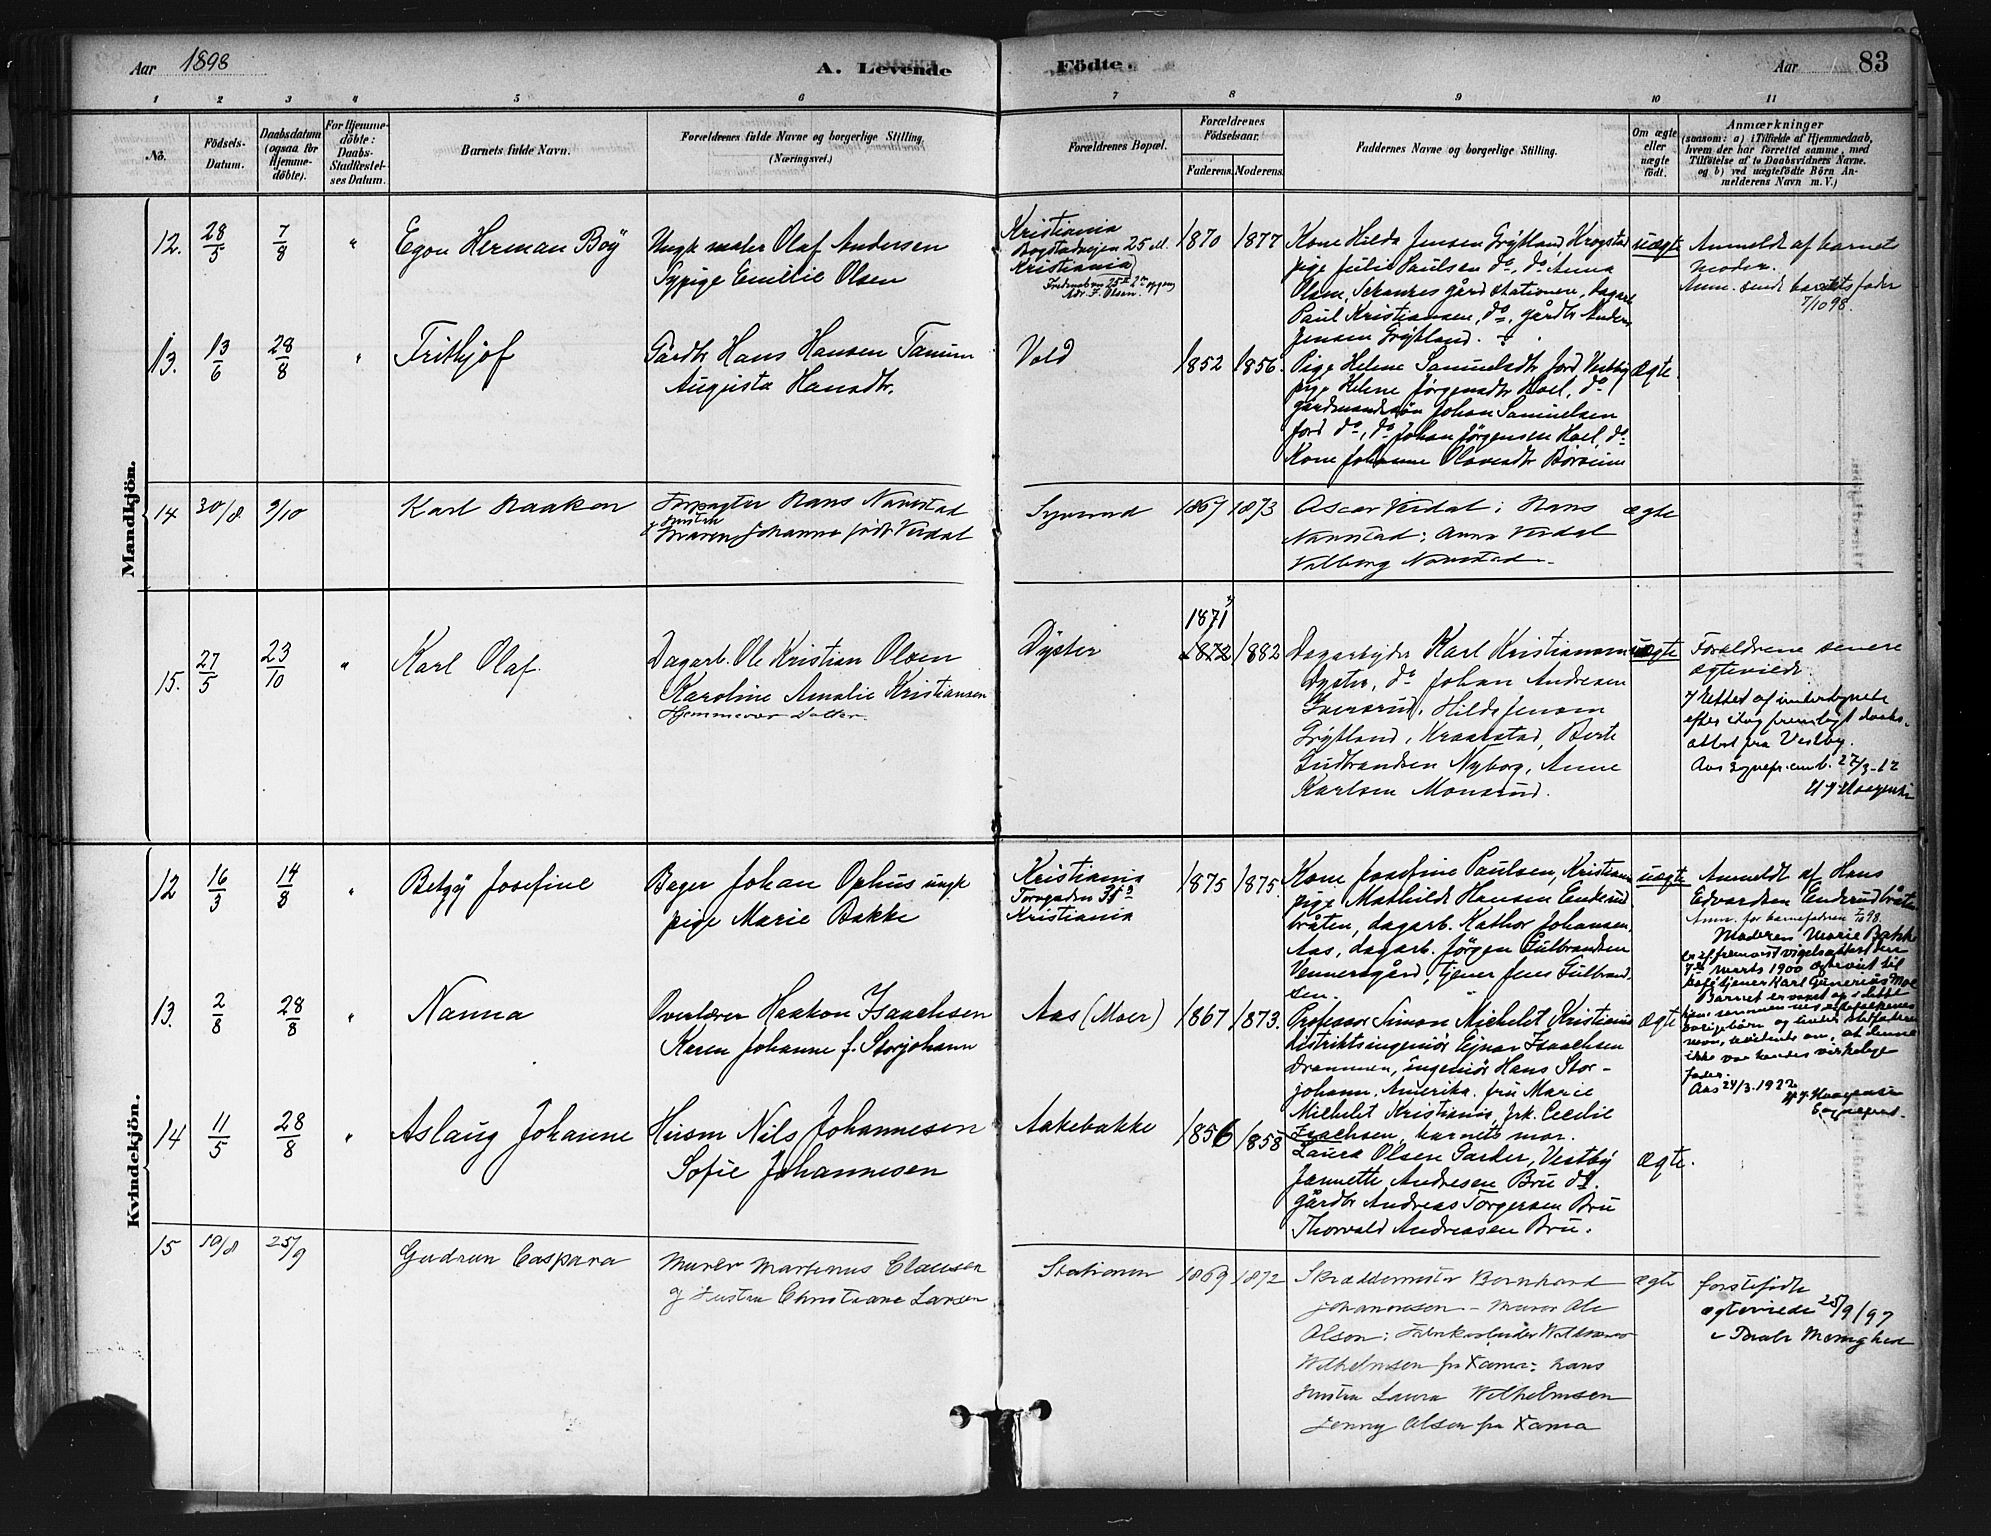 Aar 1898
A. Levende
Födte.
Aar
83
1 2 3 4 5 6 7 8 9 10 11
No.
Födsels-
Datum.
Daabsdatum
(ogsaa för
Hjemme-
döbte).
For Hjemme-
döbte:
Daabs-
Stadfæstel-
ses Datum.
Barnets fulde Navn.
Forældrenes fulde Navne og borgerlige Stilling.
(Næringsvei.)
Forældrenes Bopæl.
Forældrenes
Födselsaar.
Faderens. Moderens.
Faddernes Navne og borgerlige Stilling.
Om ægte
eller
uægte
födt.
Anmærkninger
(saasom: a) i Tilfælde af Hjemmedaab,
hvem der har forrettet samme, med
Tilföielse af to Daabsvidners Navne.
og b) ved uægtefödte Börn An-
melderens Navn m. V.)
Mandkjön.
12. 28/5 7/8 " Egon Herman Boÿ
Ungk maler Olaf Andersen
Sypige Emilie Olsen
Kristiania
Bogstadvejen 25
Kristiania
Adr. F. Olsen.
1870 1877
Kone Hilda Jensen Grÿtland, Krogstad
pige Julie Paulsen do, do Anna
Olsen, gård stationen, dagarb.
Paul Kristiansen, do, gårdbr Anders
Jensen Grÿtland.
uægte
Anmeldt af barnets
moder.
Anm. sendt barnets fader
7/10 98.
13. 13/6 28/8 " Frithjof
Gårdbr Hans Hansen Tanum
Augusta Hansdtr.
Vold
1852 1856.
Pige Helene Samuelsdtr Jord Vestby
pige Helene Jørgensdtr Hoel, do,
gårdmandssøn Johan Samuelsen
Jord do, do Johan Jørgensen Hoel, do
Kone Johanne Olavesdtr
ægte.
14 30/8 9/10 Karl Haakon
Forpagter Hans Navestad
g Hustru
Maren Johanna född Verdal
Syverud
1867 1873
Oscar Verdal; Hans
Navestad; Anna Verdal
Valborg Navestad
ægte
15. 27/5 23/10 " Karl Olaf.
Dagarb. Ole Kristian Olsen
Karoline Amalie Kristiansen
Hjemmevær. Datter.
Dÿster
1871
1872 1882
Dagarbejder Karl Kristiansen
Dyster, do Johan Andresen
Hilda Jensen
Grÿtland, Kraakstad, Berte
Gudbrandsen Nyborg, Anne
Karlsen Monsrud.
uægte
Forældrene senere
ægteviede.
Rettet af undertegnede
efter idag fremlagt daabs-
attest fra Vestby.
Aas Sognepr.emb. 27/3-12
Kvindekjön.
12 16/3 14/8 " Betzÿ Josefine
Bager Johan Ophus ungk
pige Marie Bakke
Kristiania
Torvgaden
Kristiania
1875 1875.
Kone Josefine Paulsen, Kristiania
pige Mathilde Hansen Enderud
bråten, dagarb. Kathor Johansen
Aas, dagarb. Jørgen Gulbrandsen
Vennersgård, tjener Jens Gulbrand-
sen.
uægte
Anmeldt af Hans
Edvardsen Enderudbråten
Anm. for barnefaderen 7/10 98.
Moderen Marie Bakke
er efter fremvist vigselsattest den
7de marts 1900 ægteviet til
kafétjener Karl Moe
Barnet er
24/3.1922
Aas
Sogneprest.
13. 2/8 28/8 " Nanna
Overlærer Haakon Isaachsen
Karen Johanne f. Storjohann
Aas (Moer)
1867 1873.
Professor Simon Michelet Kristiania
distriktsingeniør Ejnar Isaachsen
Drammen, ingeniør Hans Stor-
johann, Amerika, fru Marie
Michelet Kristiania, frk. Cecilie
Isachsen, barnets mor.
ægte
14 11/5 28/8 " Aslaug Johanne
Husm Nils Johannesen
Sofie Johannesen
Aakebakke
1856 1858
Laura Olsen Garder, Vestbÿ
Jannette Andresen Bru do.
gårdbr Andreas Torgersen Bru
Thorvald Andreasen Bru.
ægte.
15 19/8 25/9 Gudrun Caspara
Murer Martinus Clausen
g Hustru Christiane Larsen
Stationen
1869 1872
Skræddermester Bernhard
Johannesen - Murer Ole
Olsen;
Wilhelmsen fra Xania; hans
Hustru Laura Wilhelmsen
Jenny Olsen fra Xania
ægte
førstefødte
ægteviede 25/9/97